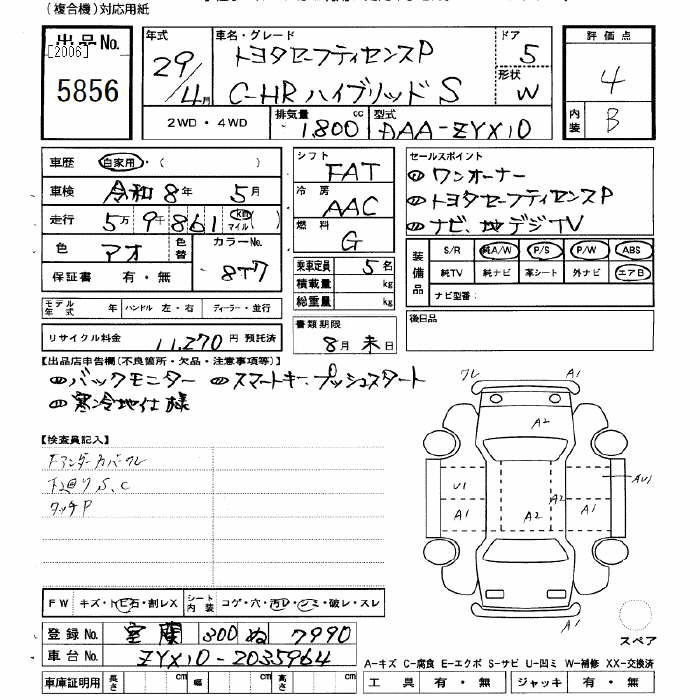 (複合機)対応用紙
出品No.
[2006]
5856
年式
29/4月
車名・グレード
トヨタセーフティセンスP
C-HR ハイブリッド S
ドア
5
形状
W
評価点
4
内装
B
2WD・4WD
排気量
1800 cc
型式
DAA-ZYX10
車歴 自家用・( )
車検 令和8年 5月
走行 5万9千861 km マイル
色 アオ 色替
カラーNo. 8T7
保証書 有・無
シフト FAT
冷房 AAC
燃料 G
乗車定員 5名
積載量 kg
総重量 kg
セールスポイント
① ワンオーナー
② トヨタセーフティセンスP
③ ナビ、地デジTV
装備品
S/R 純A/W P/S P/W ABS
純TV 純ナビ 革シート 外ナビ エアB
ナビ型番:
モデル年式 年 ハンドル 左・右 ディーラー・並行
リサイクル料金 11,270 円 預託済
書類期限
8月 末日
後日品
【出品店申告欄(不良箇所・欠品・注意事項等)】
バックモニター スマートキー、プッシュスタート
寒冷地仕様
【検査員記入】
Fアンダーカバークレ
下廻りS、C
タッチP
ワレ A1
A2
A1
U1 A2 AU1
A1 A2 A1
A1
スペア
FW キズ・ヒビ石・割レX シート内装 コゲ・穴・汚レ・シミ・破レ・スレ
登録No. 室蘭 300 ぬ 7990
車台No. ZYX10-2035964
車庫証明用 長さ cm 幅 cm 高さ cm
A-キズ C-腐食 E-エクボ S-サビ U-凹ミ W-補修 XX-交換済
工具 有・無 ジャッキ 有・無